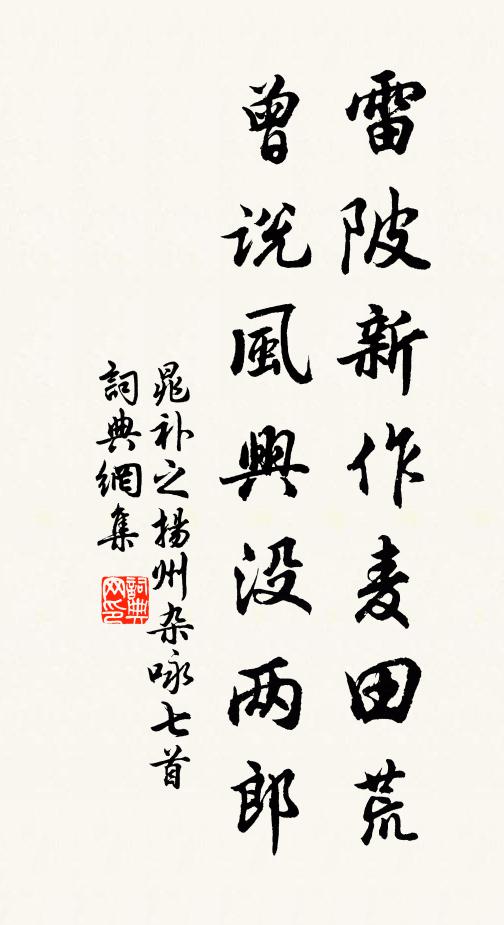 雷陂新作麦田荒
曾说風興没两郎
晁补之揚州杂咏七首
詞典網集